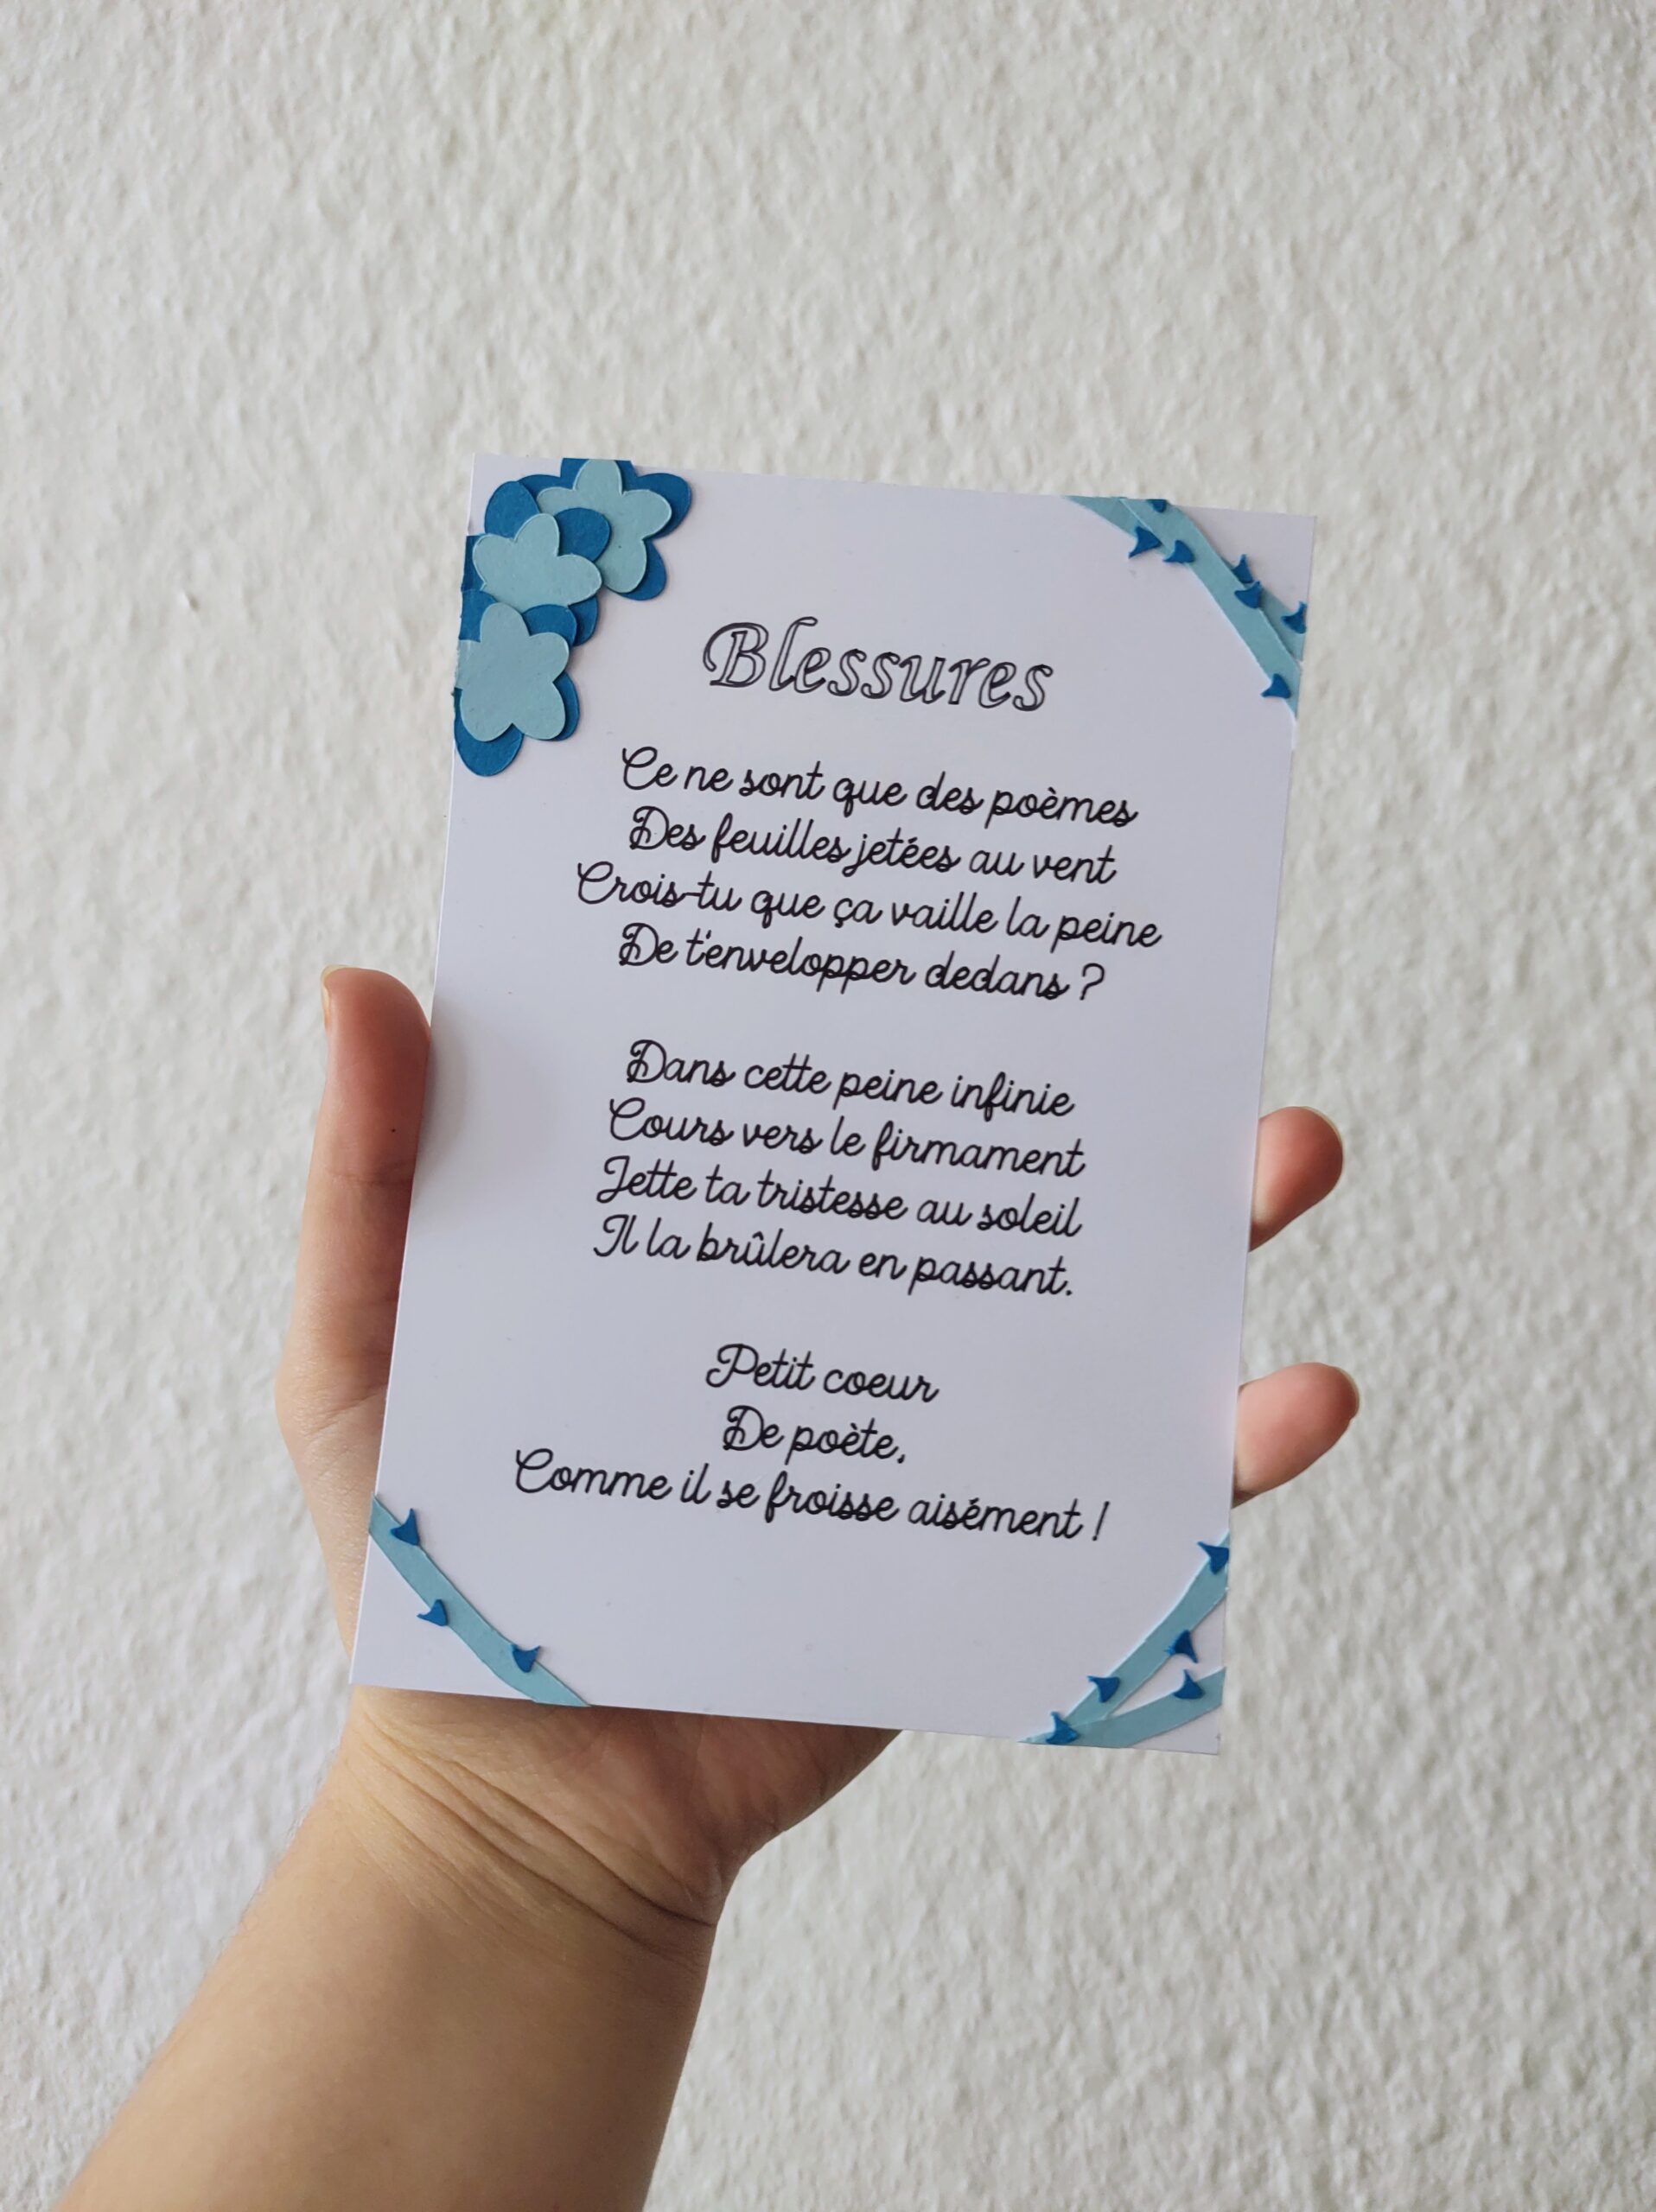 Blessures
Ce ne sont que des poèmes
Des feuilles jetées au vent
Crois-tu que ça vaille la peine
De t'envelopper dedans ?
Dans cette peine infinie
Cours vers le firmament
Jette ta tristesse au soleil
Il la brûlera en passant.
Petit coeur
De poète,
Comme il se froisse aisément !